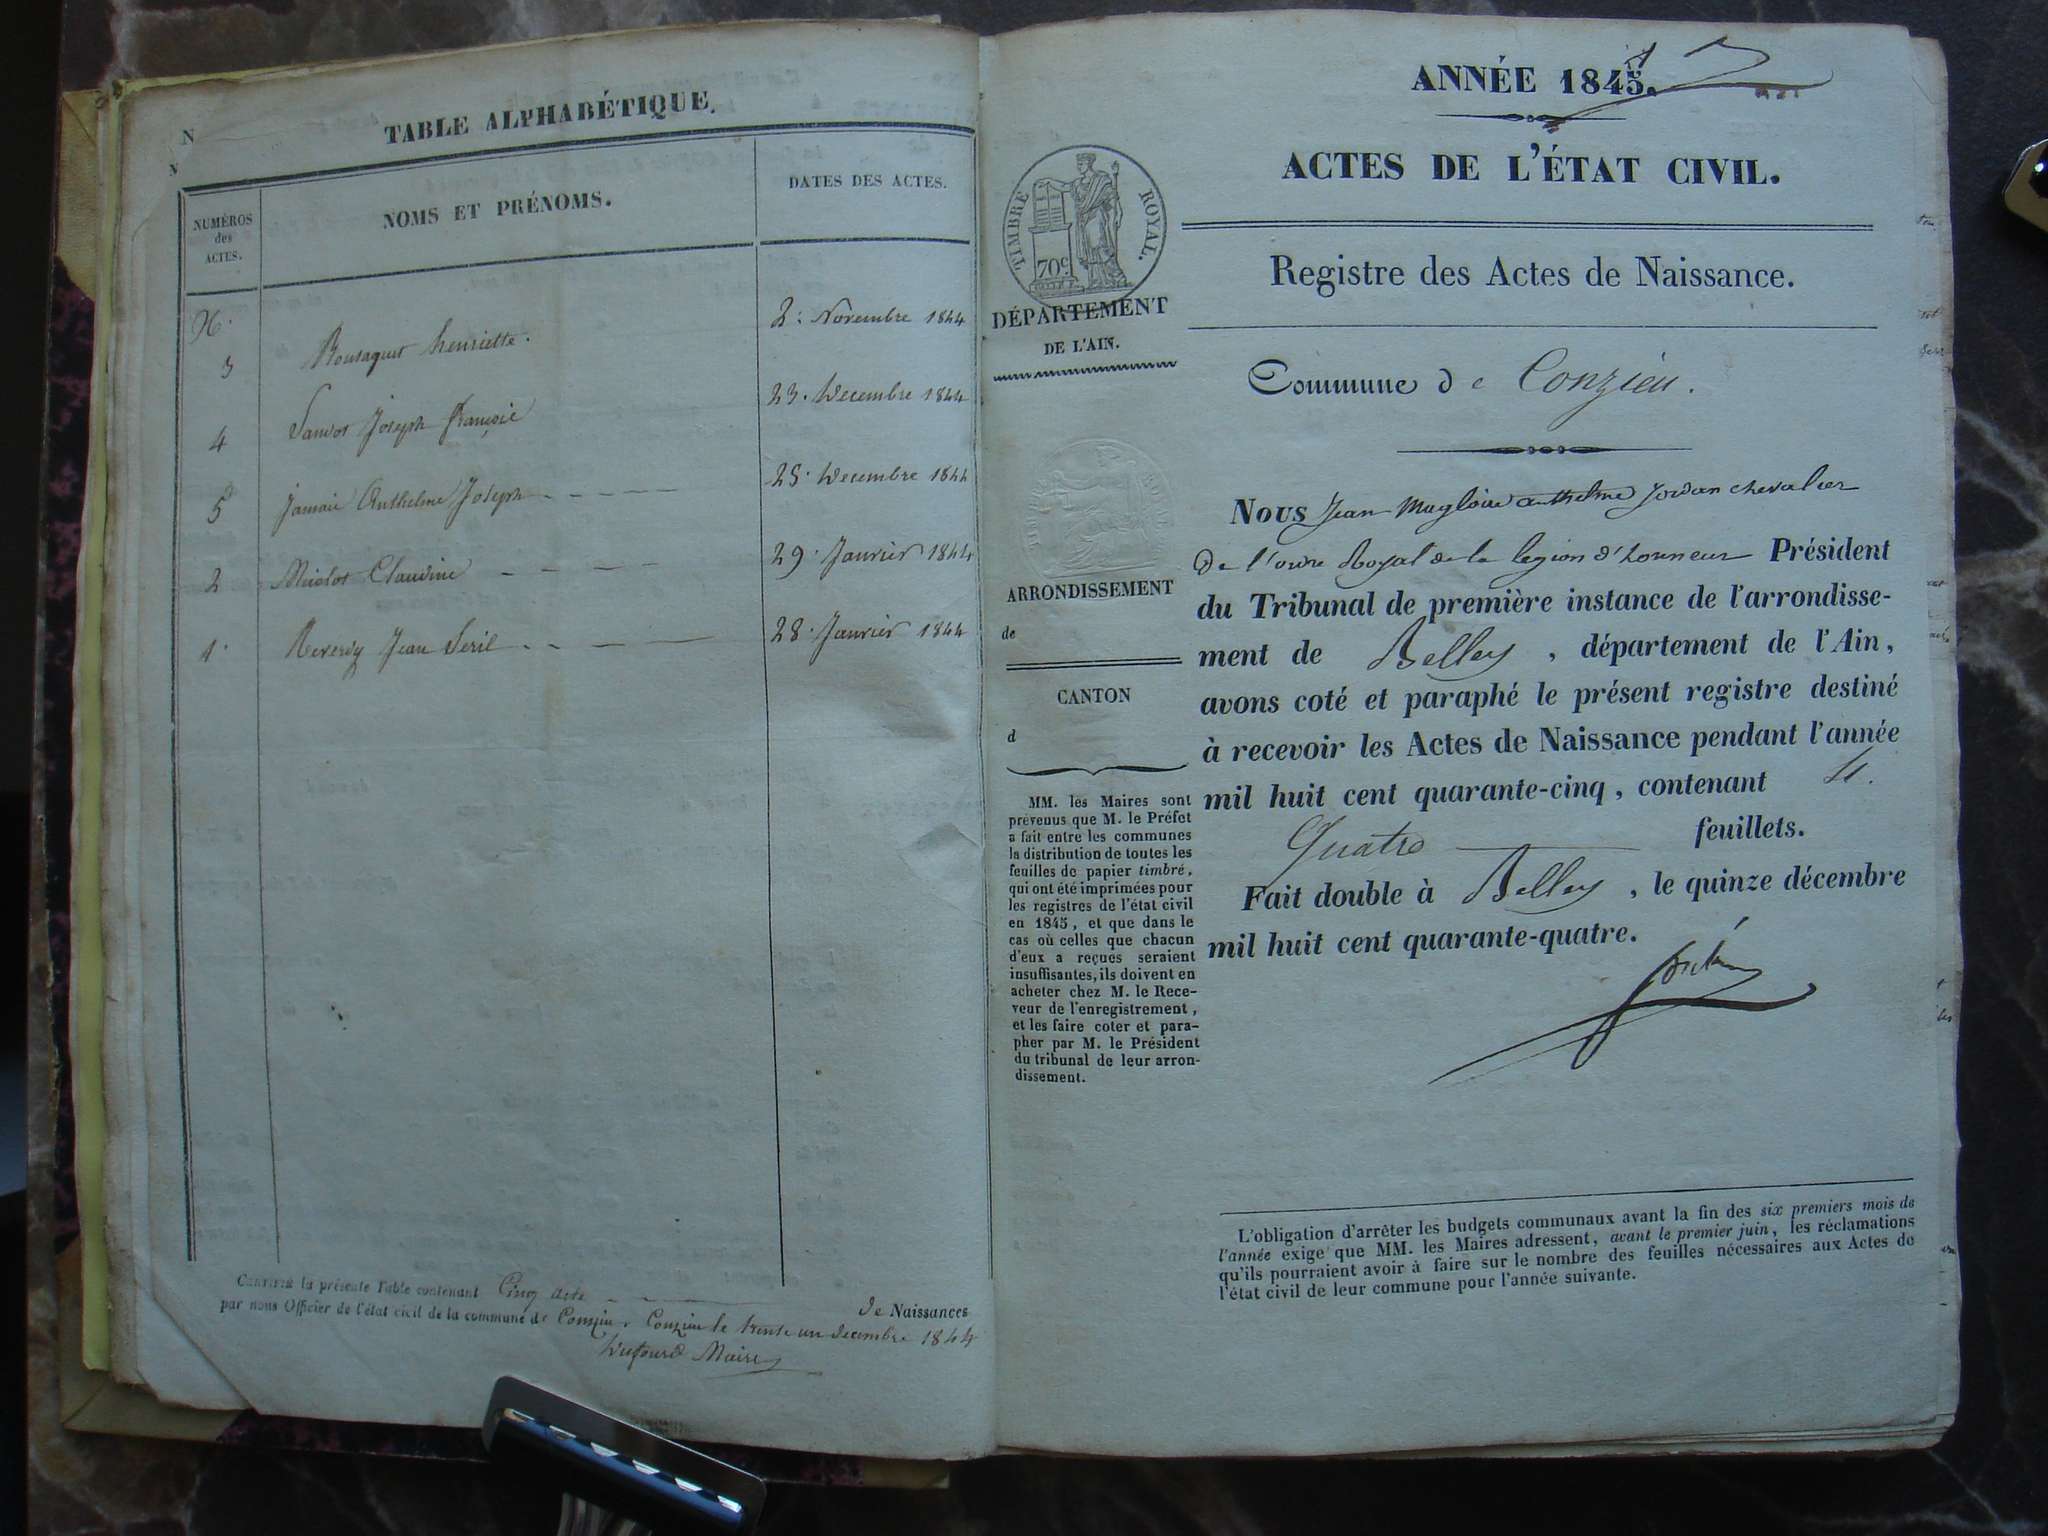 TABLE ALPHABÉTIQUE.
NUMÉROS
des
ACTES.
NOMS ET PRÉNOMS.
DATES DES ACTES.
3 Henriette. 2. Novembre 1844
4 Joseph 23. Decembre 1844
5 Anthelme Joseph 25. Decembre 1844
2 Claudine 29. Janvier 1844
1. Jean 28. Janvier 1844
la présente Table contenant Cinq acte de Naissances
par nous Officier de l'état civil de la commune de Conzieu. Conzieu le trente un decembre 1844
Dufour Maire
ANNÉE 1845.
ACTES DE L'ÉTAT CIVIL.
Registre des Actes de Naissance.
TIMBRE ROYAL.
70c
DÉPARTEMENT
DE L'AIN.
Commune de Conzieu.
ARRONDISSEMENT
de
CANTON
d
MM. les Maires sont
prévenus que M. le Préfet
a fait entre les communes
la distribution de toutes les
feuilles de papier timbré,
qui ont été imprimées pour
les registres de l'état civil
en 1845, et que dans le
cas où celles que chacun
d'eux a reçues seraient
insuffisantes, ils doivent en
acheter chez M. le Rece-
veur de l'enregistrement,
et les faire coter et para-
pher par M. le Président
du tribunal de leur arron-
dissement.
Nous Jean Magloire anthelme Jordan chevalier
de l'ordre Royal de la legion d'honneur Président
du Tribunal de première instance de l'arrondisse-
ment de Belley, département de l'Ain,
avons coté et paraphé le présent registre destiné
à recevoir les Actes de Naissance pendant l'année
mil huit cent quarante-cinq, contenant 4.
Quatre feuillets.
Fait double à Belley, le quinze décembre
mil huit cent quarante-quatre.
L'obligation d'arrêter les budgets communaux avant la fin des six premiers mois de
l'année exige que MM. les Maires adressent, avant le premier juin, les réclamations
qu'ils pourraient avoir à faire sur le nombre des feuilles nécessaires aux Actes de
l'état civil de leur commune pour l'année suivante.